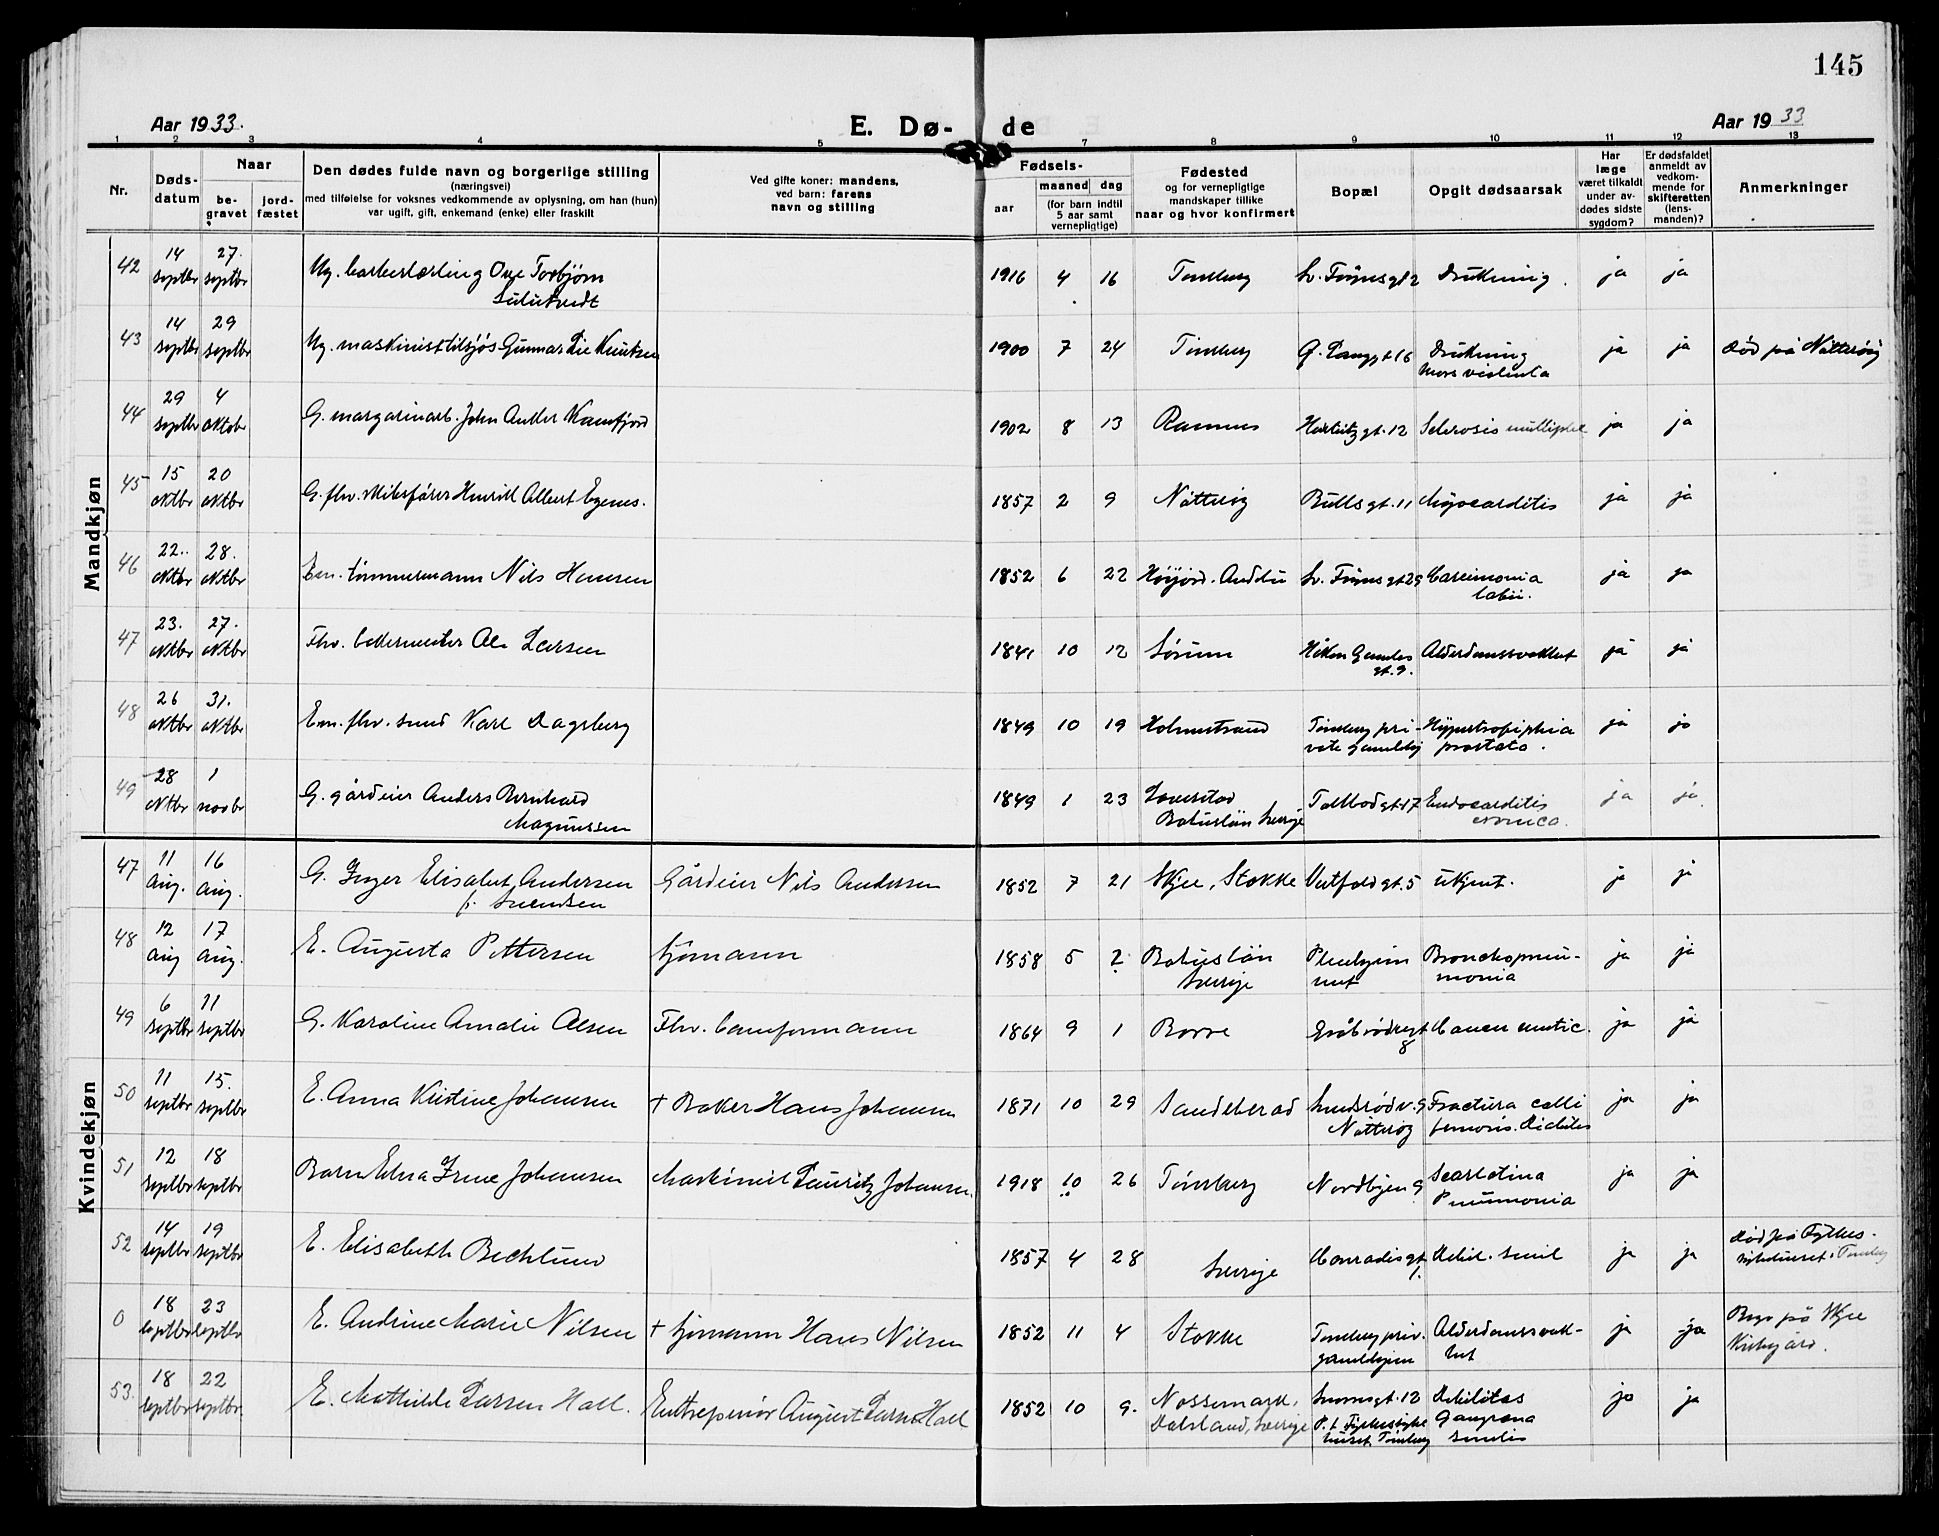 145
Aar 1933. E. Dø- de Aar 1933
1 2 3 4 5 7 8 9 10 11 12 13
Nr. Døds-datum Naar be-gravet jord-fæstet Den dødes fulde navn og borgerlige stilling (næringsvei) med tilføielse for voksnes vedkommende av oplysning, om han (hun) var ugift, gift, enkemand (enke) eller fraskilt Ved gifte koner: mandens, ved barn: farens navn og stilling Fødsels- aar maaned dag (for barn indtil 5 aar samt vernepligtige) Fødested og for vernepligtige mandskaper tillike naar og hvor konfirmert Bopæl Opgit dødsaarsak Har læge været tilkaldt under av-dødes sidste sygdom? Er dødsfaldet anmeldt av vedkom-mende for skifteretten (lens-manden)? Anmerkninger
Mandkjøn
42 14 septbr 27. septbr Ug. barberlærling Ove Torbjørn 1916 4 16 Tønsberg Sv. Føynsgt 2 Drukning. ja ja
43 14 septbr 29 septbr Ug. maskinist tilsjøs Gunnar Lie Knutsen 1900 7 24 Tønsberg Ø. Langgt 16 Drukning mors violenta ja ja død på Nøtterøy
44 29 septbr 4 oktobr G. margarinarb. John Anker Kamfjord 1902 8 13 Ramnes gt. 12 Sclerosis multiplex ja ja
45 15 oktbr 20 oktbr G. fhv. skibsfører Henrik Albert Egenes. 1857 2 9 Nøtterøy Bullsgt. 11 Myocarditis ja ja
46 22. oktbr 28. oktbr Em. tømmermann Nils Hansen 1852 6 22 Høijord. Andebu Sv. Føynsgt 29 Carcinoma labii. ja ja
47 23. oktbr 27. oktbr Fhv. bakermester Ole Larsen 1841 10 12 Sørum Håkon Gamles gt. 9. Alderdomssvakhet ja ja
48 26 oktbr 31. oktbr Em. fhv. smed Karl Dagsberg 1849 10 19 Holmestrand Tønsberg pri-vate gamlehj Hypertrophia prostata. ja ja
49 28 oktbr 1 novbr G. gårdeier Anders Bernhard Magnussen 1849 1 23 Båhuslän Sverige Tollbodgt. 17 Endocarditis cronica. ja ja.
Kvindekjøn
47 11 Aug. 16 Aug. G. Inger Elisabet Andersen f. Svendsen Gårdeier Nils Andersen 1852 7 21 Skjee, Stokke Vestfoldgt. 5 ukjent. ja ja
48 12 Aug 17 Aug. E. Augusta Pettersen Sjømann 1858 5 2 Båhuslän Sverige Pleiehjem met Bronchopneu-monia ja ja
49 6 septbr 11 septbr G. Karoline Amalie Olsen Fhv. banformann 1864 9 1 Borre Gråbrødregt 8 Cancer ventric. ja ja
50 11 septbr 15. septbr E. Anna Kristine Johansen † Baker Hans Johansen 1871 10 29 Sandeherad Smidsrødv. 9 Nøtterøy Fractura colli femoris. Diabetes ja ja
51 12 septbr 18 septbr Barn Edna Irene Johansen Maskinist Lauritz Johansen. 1918 10 26 Tønsberg Nordbyen 9 Scarlatina Pneumonia ja ja
52 14 septbr 19 septbr E. Elisabeth Becklund 1857 4 28 Sverige Conradisgt 1. Debil. senil ja ja død på Fylkes-sykehuset i Tønsberg
0 18 septbr 23 septbr E. Andrine Marie Nilsen † Sjømann Hans Nilsen 1852 11 4 Stokke Tønsberg priv. gamlehjem Alderdomssvak-het ja ja Begr på Skjee Kirkegård.
53. 18 septbr 22 septbr. E. Mathilde Larsen Hall. Entreprenør August Larsen Hall 1852 10 9. Nossemark, Dalsland, Sverige gt. 12 P. t. Fylkessyke huset Tønsberg Debilitas Gangræna senilis ja ja